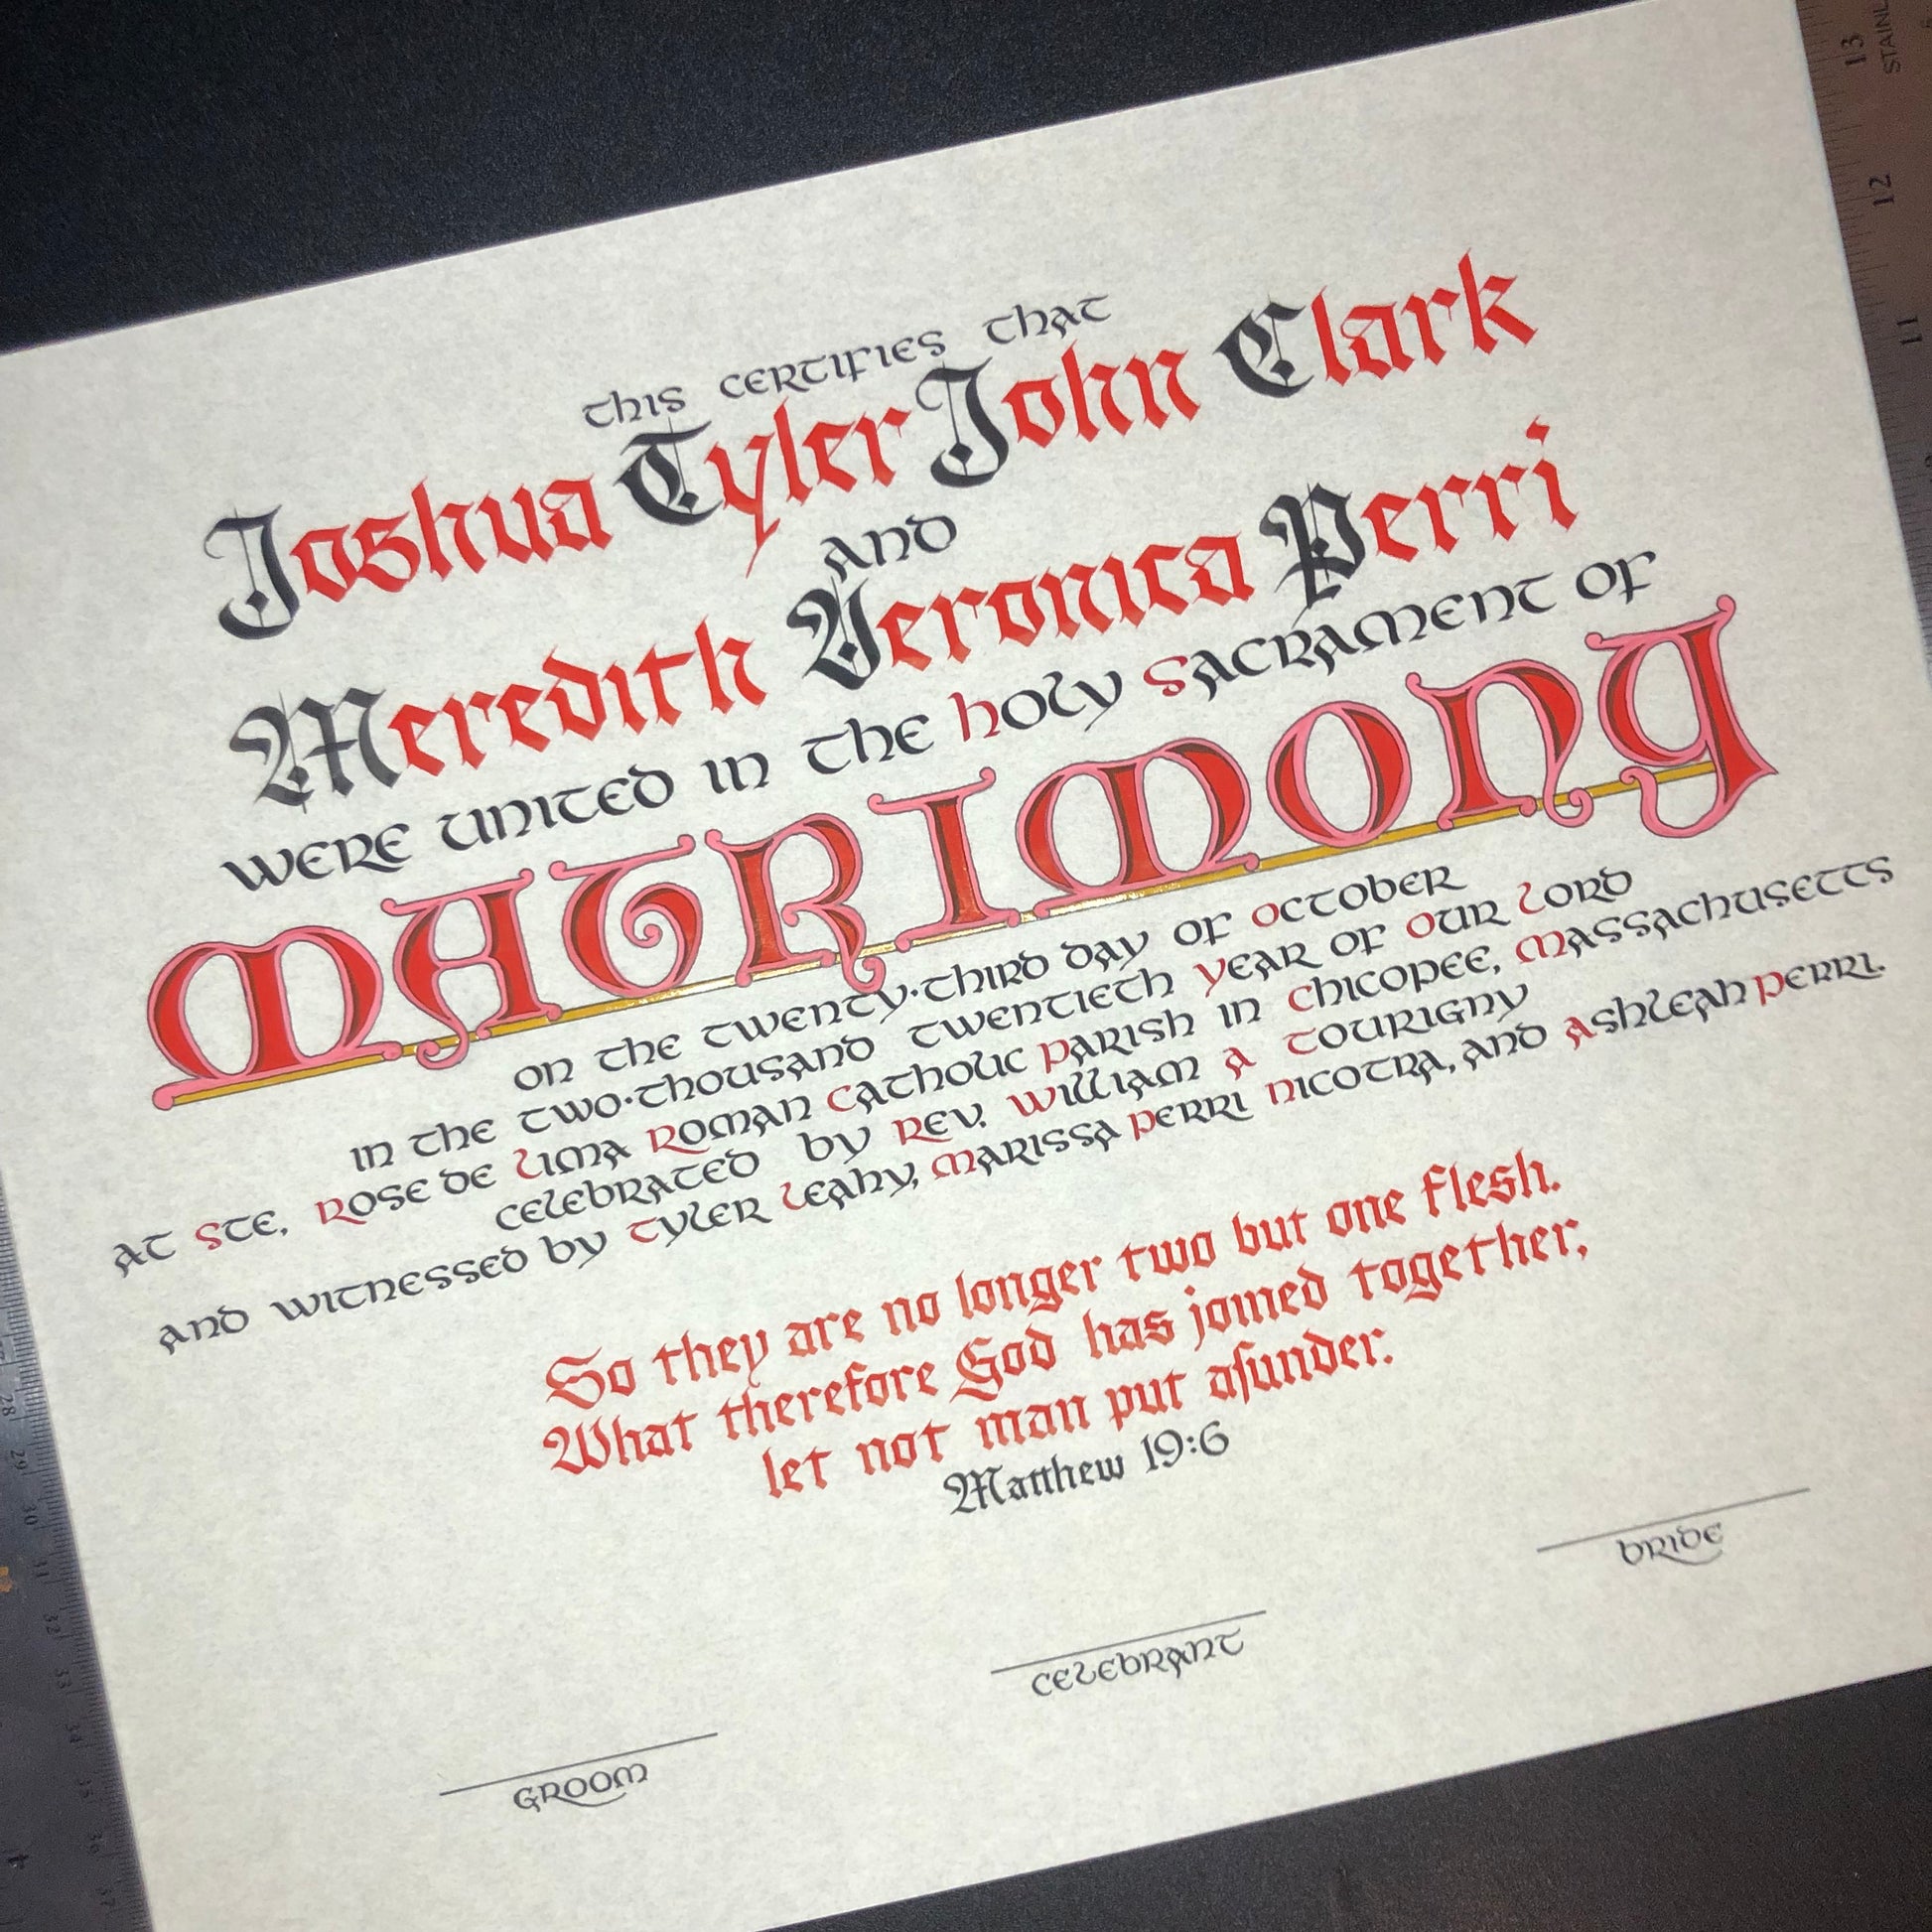 this certifies that
Joshua Tyler John Clark
and
Meredith Veronica Perri
were united in the holy Sacrament of
MATRIMONY
on the twenty·third day of October
in the two·thousand twentieth Year of Our Lord
at Ste. Rose de Lima Roman Catholic Parish in Chicopee, Massachusetts
celebrated by Rev. William A Tourigny
and witnessed by Tyler Leahy, Marissa Perri Nicotra, and Ashleah Perri.
So they are no longer two but one flesh.
What therefore God has joined together,
let not man put aſunder.
Matthew 19:6
Bride
Celebrant
Groom
13
12
11
28
29
30
31
32
33
34
35
36
37
4